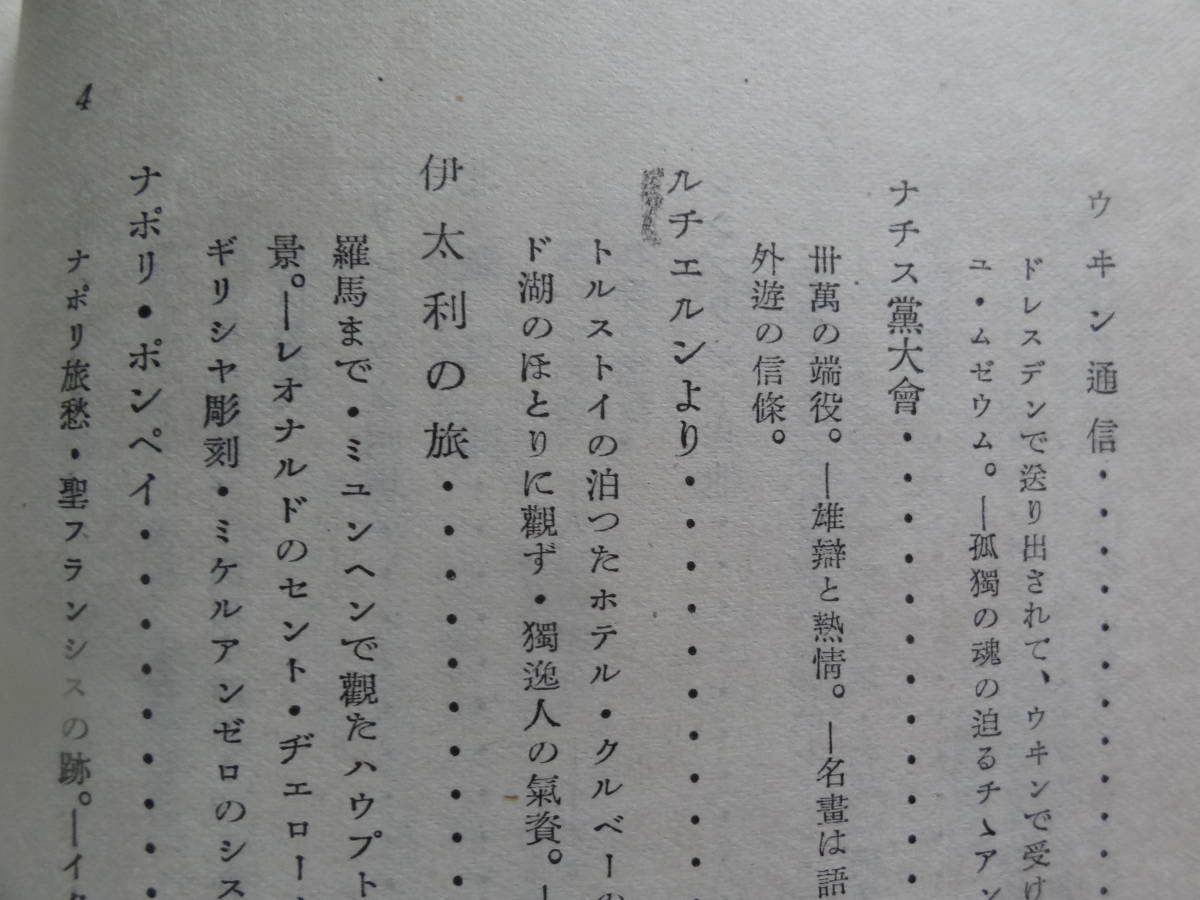 ウヰン通信・・・・・・・・
ドレスデンで送り出されて、ウヰンで受け
ユ・ムゼウム。—孤獨の魂の迫るチゝアン
ナチス黨大會・・・・・・・・・・
卅萬の端役。—雄辯と熱情。—名畫は語
外遊の信條。
ルチエルンより・・・・・・・・・・
トルストイの泊つたホテル・クルベーの
ド湖のほとりに觀ず・獨逸人の氣資。—
伊太利の旅・・・・・・・・・・
羅馬まで・ミユンヘンで觀たハウプト
景。—レオナルドのセント・ヂエロー
ギリシヤ彫刻・ミケルアンゼロのシス
ナポリ・ポンペイ・・・・・・・・・
ナポリ旅愁・聖フランシスの跡。—イタ
4